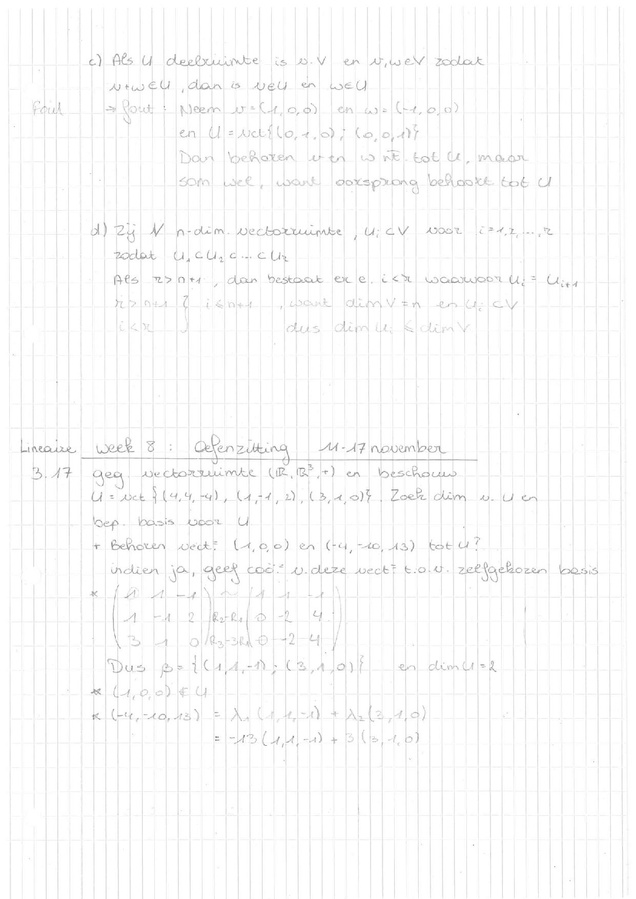 c) Als U deelruimte is v. V en v,w∈V zodat
v+w∈U, dan is v∈U en w∈U
Fout → fout: Neem v=(1,0,0) en w=(-1,0,0)
en U = vct{(0,1,0); (0,0,1)}
Dan behoren v en w nt. tot U, maar
som wel, want oorsprong behoort tot U
d) Zij V n-dim. vectorruimte, Ui ⊂ V voor i=1,2,...,r
zodat U1 ⊂ U2 ⊂ ... ⊂ Ur
Als r>n+1, dan bestaat er e. i<r waarvoor Ui = Ui+1
r>n+1 } i≤n+1, want dim V = n en Ui ⊂ V
i<r } dus dim Ui ≤ dim V
Lineaire week 8 : Oefenzitting 11-17 november
3.17 geg. vectorruimte (ℝ, ℝ³, +) en beschouw
U = vct {(4,4,-4), (1,-1,2), (3,1,0)}. Zoek dim v. U en
bep. basis voor U
+ Behoren vect.ⁿ (1,0,0) en (-4,-10,13) tot U?
indien ja, geef coö.ⁿ v. deze vect.ⁿ t.o.v. zelfgekozen basis
* (1 1 -1) ~ (1 1 -1)
(1 -1 2) R2-R1 (0 -2 4... 
(3 1 0) R3-3R1 (0 -2 4)
Dus β = {(1,1,-1); (3,1,0)} en dim U = 2
* (1,0,0) ∉ U
* (-4,-10,13) = λ1 (1,1,-1) + λ2 (3,1,0)
= -13 (1,1,-1) + 3 (3,1,0)